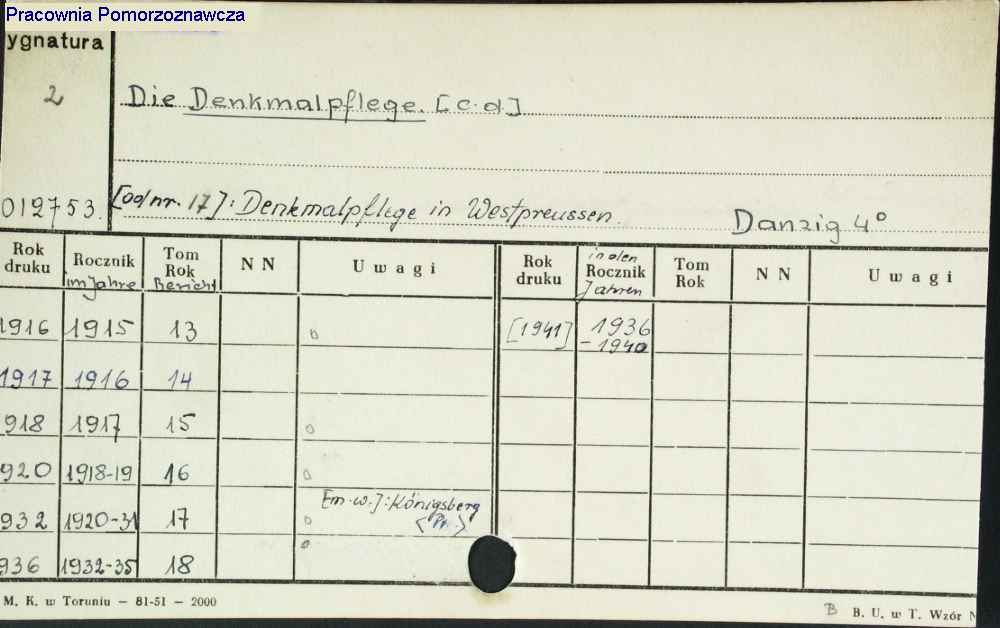 Pracownia Pomorzoznawcza
ygnatura
2
Die Denkmalpflege. [c.d]
012753.
[od nr. 17]: Denkmalpflege in Westpreussen. Danzig 4°
Rok druku | Rocznik im Jahre | Tom Rok Bericht | N N | U w a g i | Rok druku | in den Rocznik Jahren | Tom Rok | N N | U w a g i
1916 | 1915 | 13 | [1941] | 1936 - 1940
1917 | 1916 | 14
918 | 1917 | 15
920 | 1918-19 | 16
932 | 1920-31 | 17 | [m.w.]: Königsberg <Pr.>
936 | 1932-35 | 18
M. K. w Toruniu — 81-51 — 2000
B B. U. w T. Wzór N